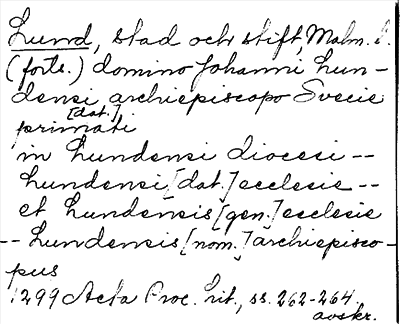 Lund, stad och stift, Malm. l.
(forts.) domino Johanni Lun-
densi archiepiscopo Svecie
[dat.]
primati
in Lundensi diocesi --
Lundensi [dat.] ecclesie --
et Lundensis [gen.] ecclesie
-- Lundensis [nom.] archiepisco-
pus
1299 Acta Proc. Lit., ss. 262-264.
avskr.